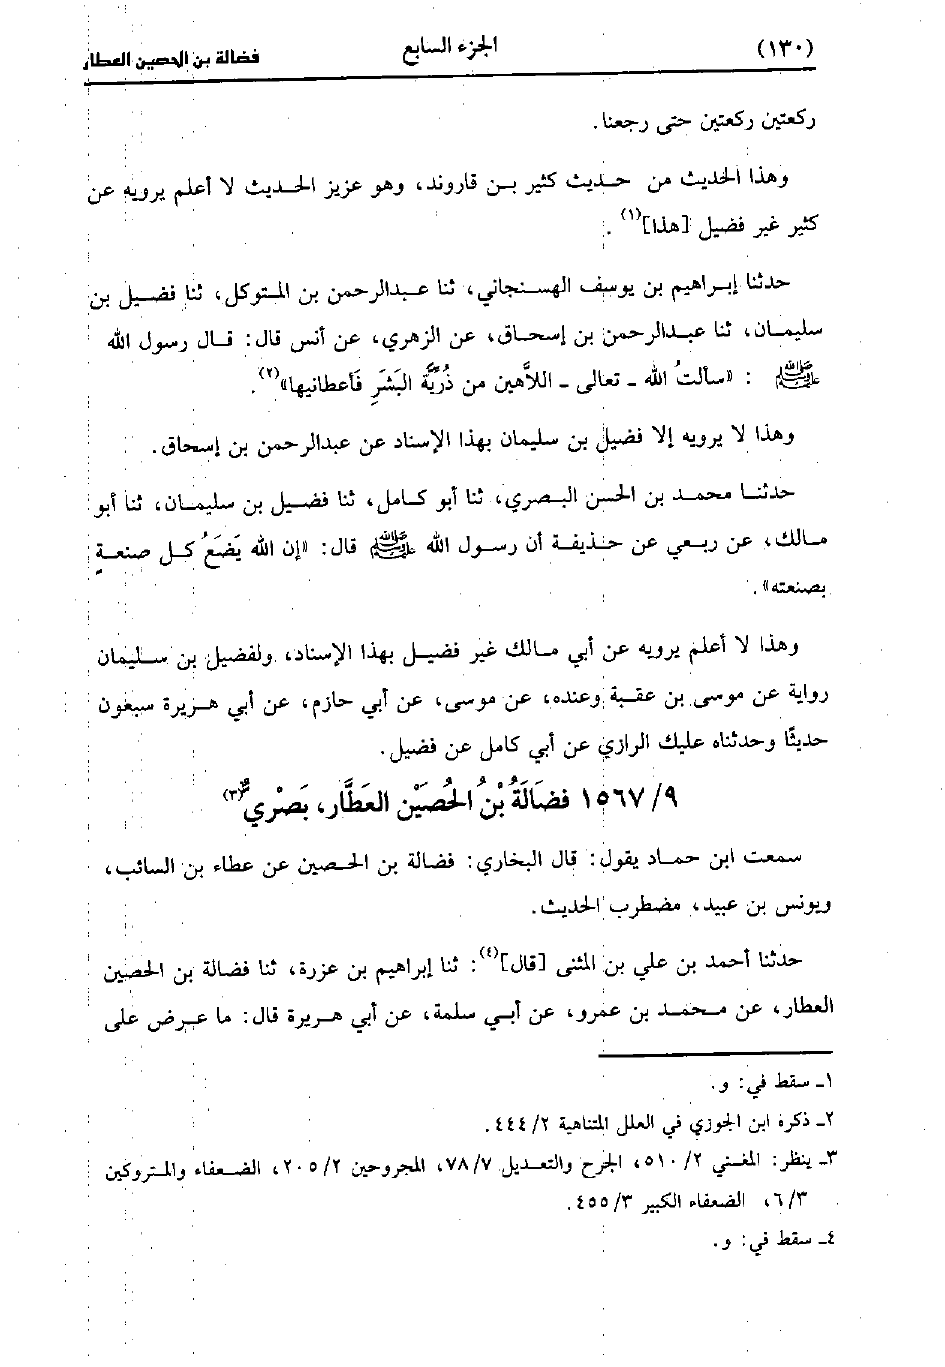 (١٣٠) الجزء السابع فضالة بن الحصين العطار
ركعتين ركعتين حتى رجعنا.
وهذا الحديث من حديث كثير بن قاروند، وهو عزيز الحديث لا أعلم يرويه عن
كثير غير فضيل [هذا](١).
حدثنا إبراهيم بن يوسف الهسنجاني، ثنا عبدالرحمن بن المتوكل، ثنا فضيل بن
سليمان، ثنا عبدالرحمن بن إسحاق، عن الزهري، عن أنس قال: قال رسول الله
ﷺ : «سألتُ الله ـ تعالى ـ اللاَّهين من ذُرِّيَّة البَشَرِ فَأعطانيها»(٢).
وهذا لا يرويه إلا فضيل بن سليمان بهذا الإسناد عن عبدالرحمن بن إسحاق.
حدثنا محمد بن الحسن البصري، ثنا أبو كامل، ثنا فضيل بن سليمان، ثنا أبو
مالك، عن ربعي عن حذيفة أن رسول الله ﷺ قال: «إن الله يَضَعُ كل صنعةٍ
بصنعته».
وهذا لا أعلم يرويه عن أبي مالك غير فضيل بهذا الإسناد، ولفضيل بن سليمان
رواية عن موسى بن عقبة وعنده، عن موسى، عن أبي حازم، عن أبي هريرة سبعون
حديثًا وحدثناه عليك الرازي عن أبي كامل عن فضيل.
٩/ ١٥٦٧ فضَالَةُ بْنُ الحُصَيْن العَطَّار، بَصْرِيٌّ(٣)
سمعت ابن حماد يقول: قال البخاري: فضالة بن الحصين عن عطاء بن السائب،
ويونس بن عبيد، مضطرب الحديث.
حدثنا أحمد بن علي بن المثنى [قال](٤): ثنا إبراهيم بن عزرة، ثنا فضالة بن الحصين
العطار، عن محمد بن عمرو، عن أبي سلمة، عن أبي هريرة قال: ما عرض على
١ـ سقط في: و.
٢ـ ذكره ابن الجوزي في العلل المتناهية ٢/ ٤٤٤.
٣ـ ينظر: المغني ٢/ ٥١٠، الجرح والتعديل ٧/ ٧٨، المجروحين ٢/ ٢٠٥، الضعفاء والمتروكين
٣/ ٦، الضعفاء الكبير ٣/ ٤٥٥.
٤ـ سقط في: و.